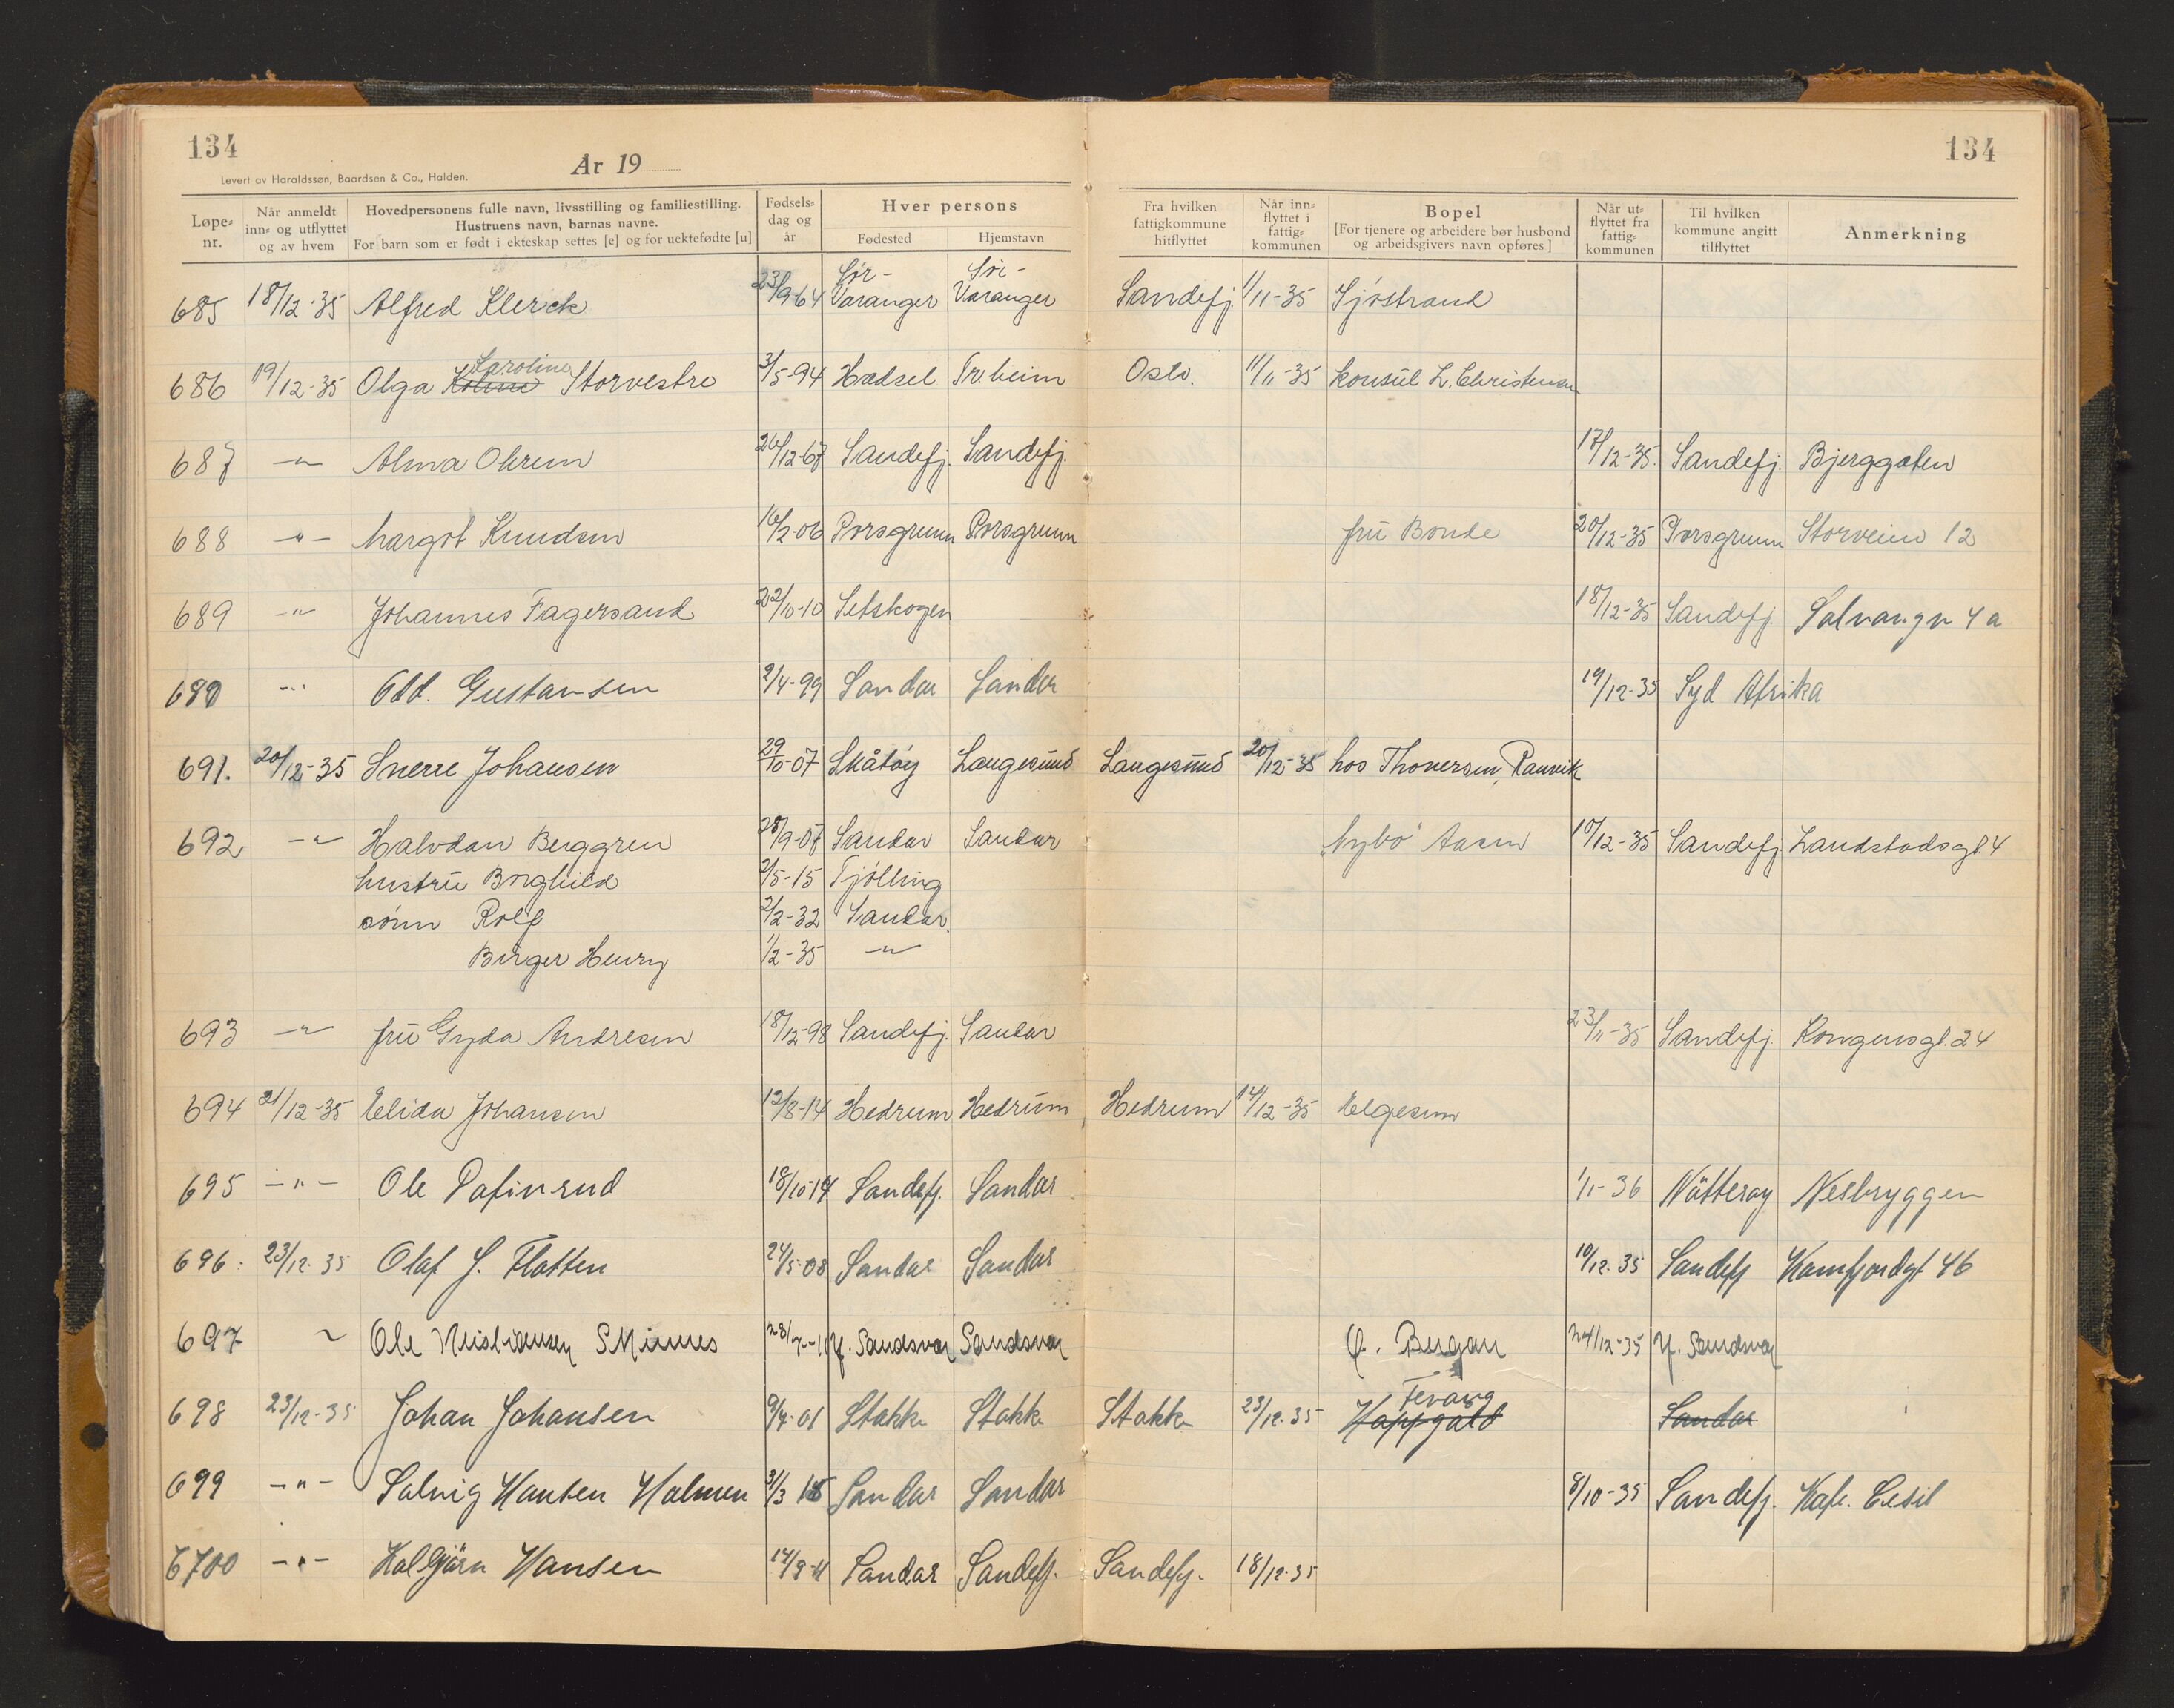 134
År 19
134
Levert av Haraldssøn, Baardsen & Co., Halden.
Løpe-nr. Når anmeldt inn- og utflyttet og av hvem Hovedpersonens fulle navn, livsstilling og familiestilling. Hustruens navn, barnas navne. For barn som er født i ekteskap settes [e] og for uektefødte [u] Fødsels-dag og år Hver persons Fødested Hjemstavn Fra hvilken fattigkommune hitflyttet Når inn-flyttet i fattig-kommunen Bopel [For tjenere og arbeidere bør husbond og arbeidsgivers navn opføres] Når ut-flyttet fra fattig-kommunen Til hvilken kommune angitt tilflyttet Anmerkning
685 18/12-35 Alfred Klerck 23/9-64 Sør-Varanger Sør-Varanger Sandefj. 1/11-35 Sjöstrand
686 19/12-35 Olga Karoline Storvestre 3/5-94 Hadsel Tr.heim Oslo. 11/11-35 konsul L. Christensen
687 -"- Alma Ohren 26/12-67 Sandefj. Sandefj. 17/12-35. Sandefj. Bjerggaten
688 -"- Margot Knudsen 16/2-06 Porsgrunn Porsgrunn fru Bonde 20/12-35 Porsgrunn Storveien 12
689 -"- Johannes Fagersand 22/10-10 Setskogen 18/12-35 Sandefj. Solvangv 4a
680 -"- Odd. Gustavsen 2/4-99 Sandar Sandar 19/12-35 Syd Afrika
691. 20/12-35 Sverre Johansen 29/10-07 Skåtøy Langesund Langesund 20/12-35 hos Thoversen, Ranvik
692 -"- Halvdan Berggren 28/9-07 Sandar Sandar Nybo Aasen 10/12-35 Sandefj. Landstadsgt. 4
hustru Borghild 2/5-15 Tjølling
sønn Rolf 2/2-32 Sandar.
Birger Henry 1/2-35 -"-
693 -"- fru Gyda Andresen 18/12-98 Sandefj. Sandar 23/11-35 Sandefj. Kongensgt. 24
694 21/12-35 Elida Johansen 12/8-14 Hedrum Hedrum Hedrum 14/12-35 Elgesem
695 -"- Ole Pafinrud 18/10-14 Sandefj. Sandar 1/1-36 Nötteroy Nesbryggen
696. 23/12-35 Olaf J. Flatten 24/5-08 Sandar Sandar 10/12-35 Sandefj Kamfjordgt 46
697 Ole Kristiansen Skinnes 28/7-11 Y. Sandsvær Sandsvær O. Bergan 24/12-35 Y. Sandsvær
698 23/12-35 Johan Johansen 9/4-01 Stokke Stokke Stokke 23/12-35 Hoppgald Fevang Sandar
699 -"- Solveig Hansen Holmen 31/3 Sandar Sandar 8/10-35 Sandefj. Kafe. Cesil
6700 -"- Halbjörn Hansen 14/9-11 Sandar Sandefj. Sandefj. 18/12-35